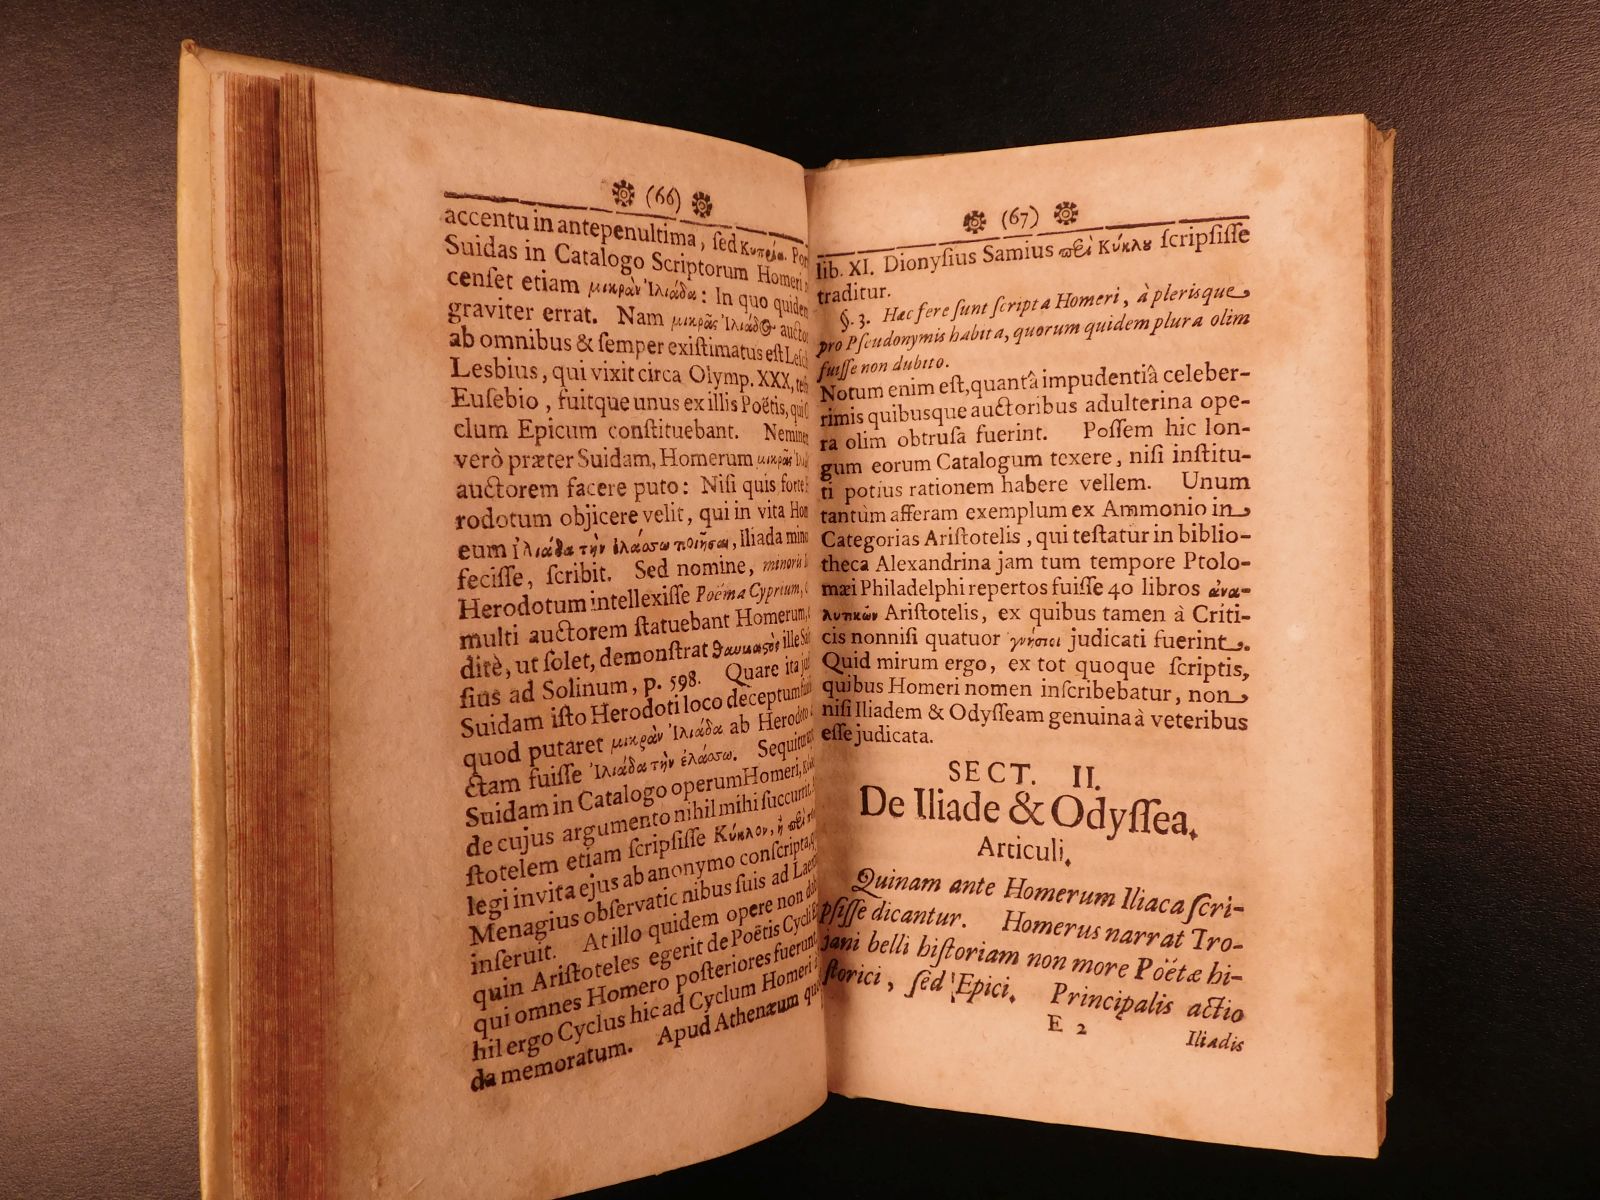 (66)
accentu in antepenultima, ſed Κυπρία.
Suidas in Catalogo Scriptorum Homeri
cenſet etiam μικρὰν Ἰλιάδα: In quo quidem
graviter errat. Nam μικρᾶς Ἰλιάδος auctor
ab omnibus & ſemper exiſtimatus eſt
Lesbius, qui vixit circa Olymp. XXX,
Euſebio, fuitque unus ex illis Poëtis, qui
clum Epicum conſtituebant.
verò præter Suidam, Homerum μικρᾶς
auctorem facere puto: Niſi quis forte
rodotum objicere velit, qui in vita
eum ἰλιάδα τὴν ἐλάσσω ποιῆσαι, iliada
feciſſe, ſcribit. Sed nomine, minoris
Herodotum intellexiſſe Poëma Cyprium,
multi auctorem ſtatuebant Homerum,
ditè, ut ſolet, demonſtrat θαυμαστὸς ille
ſius ad Solinum, p. 598. Quare ita
Suidam iſto Herodoti loco deceptum
quod putaret μικρὰν Ἰλιάδα ab
ctam fuiſſe Ἰλιάδα τὴν ἐλάσσω.
Suidam in Catalogo operum Homeri,
de cujus argumento nihil mihi ſuccurrit.
ſtotelem etiam ſcripſiſſe Κύκλον, ἢ περὶ
legi in vita ejus ab anonymo conſcripta,
Menagius obſervationibus ſuis ad
inſeruit. At illo quidem opere non
quin Ariſtoteles egerit de Poëtis Cycli
qui omnes Homero poſteriores fuerunt,
hil ergo Cyclus hic ad Cyclum Homeri
da memoratum. Apud Athenæum
(67)
lib. XI. Dionyſius Samius περὶ Κύκλου ſcripſiſſe
traditur.
§. 3. Hæc fere ſunt ſcripta Homeri, à plerisque
pro Pſeudonymis habita, quorum quidem plura olim
fuiſſe non dubito.
Notum enim eſt, quantâ impudentiâ celeber-
rimis quibusque auctoribus adulterina ope-
ra olim obtruſa fuerint. Poſſem hic lon-
gum eorum Catalogum texere, niſi inſtitu-
ti potius rationem habere vellem. Unum
tantùm afferam exemplum ex Ammonio in
Categorias Ariſtotelis, qui teſtatur in biblio-
theca Alexandrina jam tum tempore Ptolo-
mæi Philadelphi repertos fuiſſe 40 libros ἀνα-
λυτικῶν Ariſtotelis, ex quibus tamen à Criti-
cis nonniſi quatuor γνήσιοι judicati fuerint.
Quid mirum ergo, ex tot quoque ſcriptis,
quibus Homeri nomen inſcribebatur, non
niſi Iliadem & Odyſſeam genuina à veteribus
eſſe judicata.
SECT. II.
De Iliade & Odyſſea.
Articuli.
Quinam ante Homerum Iliaca ſcri-
pſiſſe dicantur. Homerus narrat Tro-
jani belli hiſtoriam non more Poëtæ hi-
ſtorici, ſed Epici. Principalis actio
E 2
Iliadis